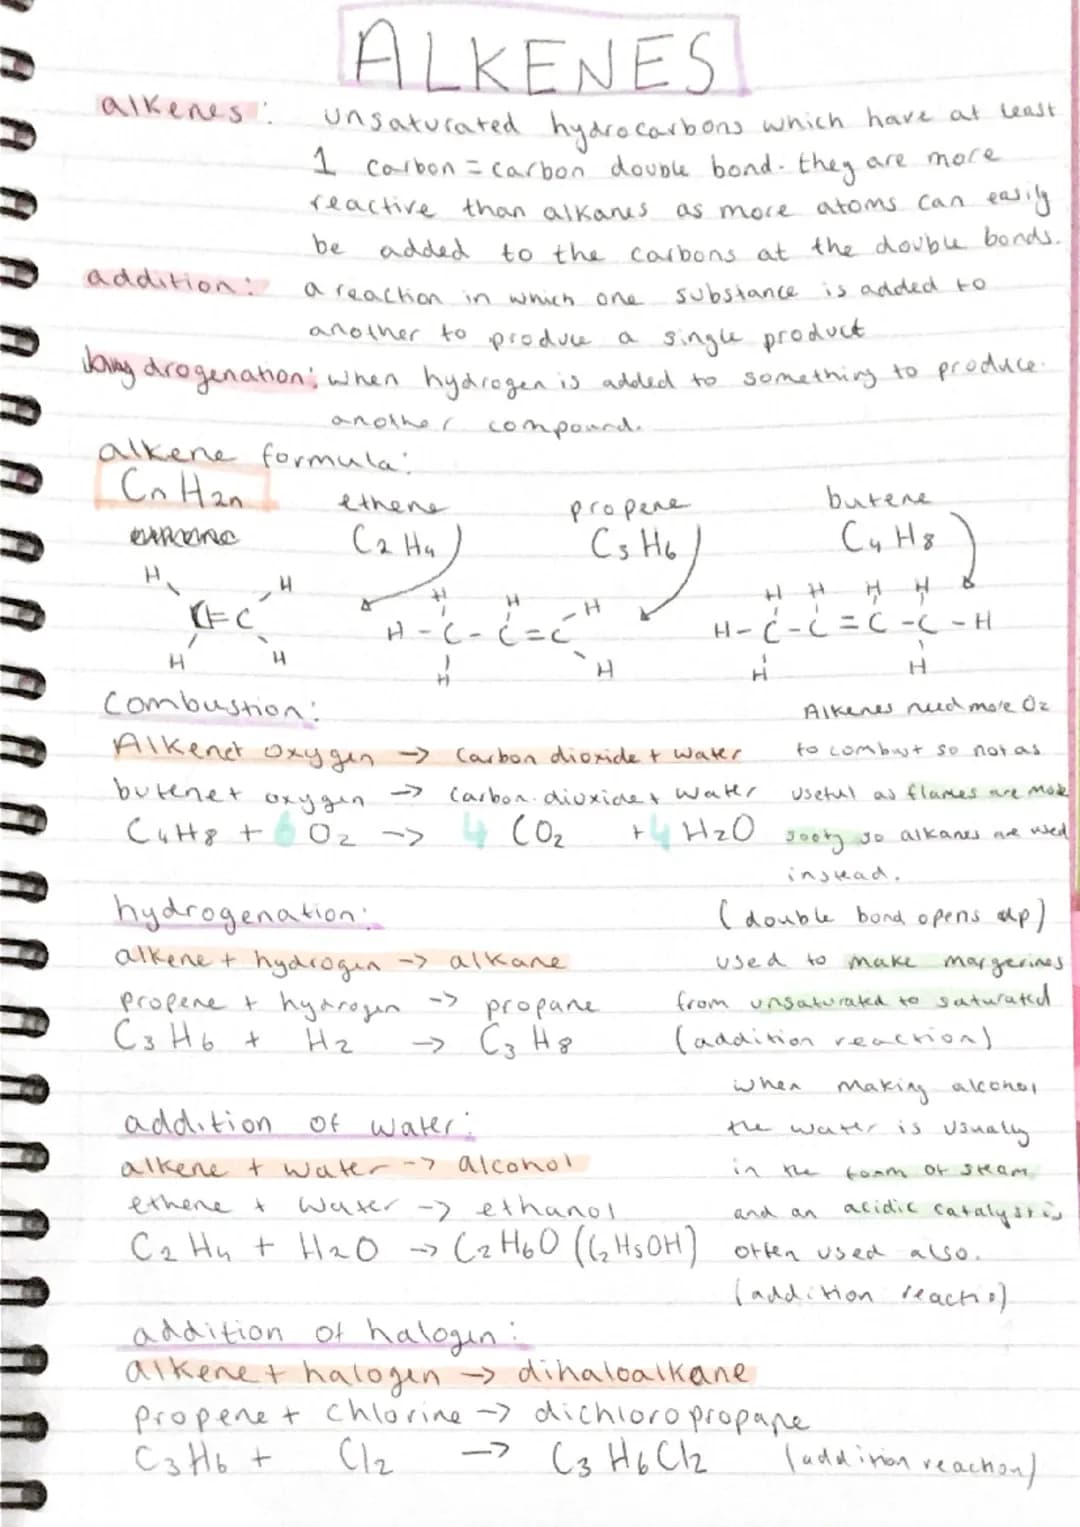 ALKENES
alkenes: unsaturated hydrocarbons which have at least
1 carbon = carbon double bond. they are more
reactive than alkanes as more atoms can easily
be added to the carbons at the double bonds.
addition: a reaction in which one substance is added to
another to produce a single product
drogenation: when hydrogen is added to something to produce
another compound.
alkene formula:
CnH2n
ethene propene butene
C2H4 C3H6 C4H8
H H H H H H H H H
C=C H-C-C=C H-C-C=C-C-H
H H H H H H
combustion:
Alkene+ oxygen -> carbon dioxide + water
butene+ oxygen -> carbon dioxide+ water
C4H8 + 6 O2 -> 4 CO2 + 4 H2O
Alkenes need more O2
to combust so not as
useful as flames are more
sooty so alkanes are used
instead.
hydrogenation:
alkene + hydrogen -> alkane
propene + hydrogen -> propane
C3H6 + H2 -> C3H8
(double bond opens up)
used to make margerines
from unsaturated to saturated
(addition reaction)
addition of water:
alkene + water -> alcohol
ethene + water -> ethanol
C2H4 + H2O -> C2H6O (C2H5OH)
when making alcohol
the water is usually
in the form of steam
and an acidic catalyst is
often used also.
(addition reactio)
addition of halogen:
alkene + halogen -> dihaloalkane
propene + chlorine -> dichloropropane
C3H6 + Cl2 -> C3H6Cl2 (addition reaction)